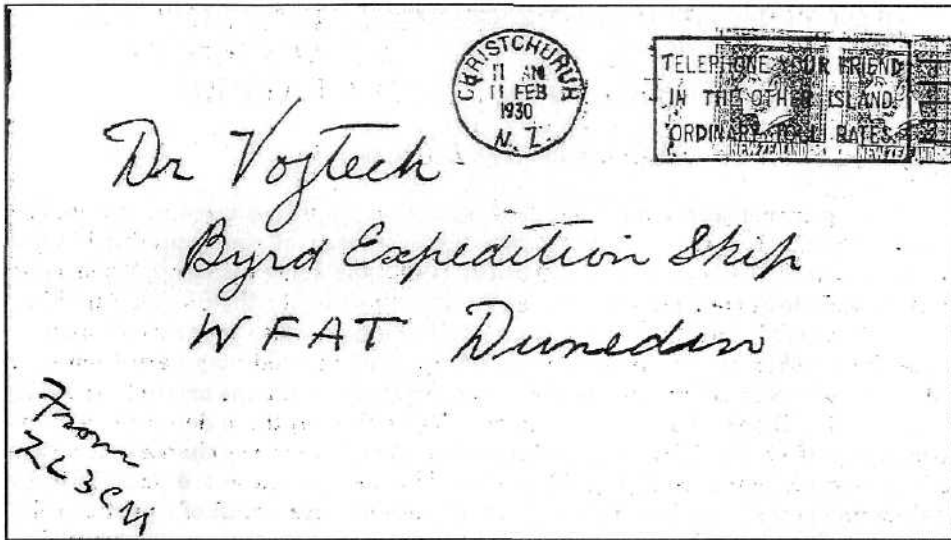 CHRISTCHURCH
11 AM
11 FEB
1930
N.Z.
TELEPHONE YOUR FRIEND
IN THE OTHER ISLAND
ORDINARY TOLL RATES
NEW ZEALAND
Dr Vojtech
Byrd Expedition Ship
WFAT Dunedin
From
ZL3CM